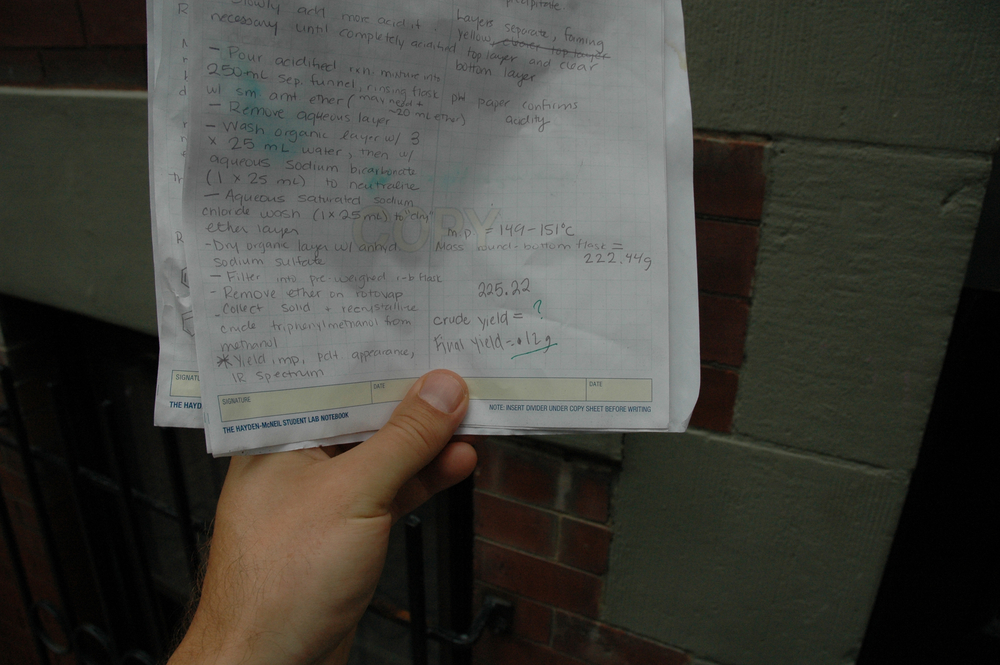 precipitate.
Slowly add more acid if
necessary until completely acidified
Layers separate, forming
yellow, clearer top layer
top layer and clear
bottom layer
- Pour acidified rxn. mixture into
250 mL sep. funnel, rinsing flask
w/ sm amt ether (may need +
~20 mL ether)
pH paper confirms
acidity
- Remove aqueous layer
- Wash organic layer w/ 3
x 25 mL water, then w/
aqueous sodium bicarbonate
(1 x 25 mL) to neutralize
- Aqueous saturated sodium
chloride wash (1x 25 mL) to "dry"
ether layer
- Dry organic layer w/ anhyd.
sodium sulfate
- Filter into pre-weighed r-b flask
- Remove ether on rotovap
- Collect solid + recrystallize
crude triphenylmethanol from
methanol
* Yield, mp, pdt appearance,
IR Spectrum
COPY
m.p. = 149-151°C
Mass round-bottom flask =
222.44g
225.22
crude yield = ?
Final yield = .12g
SIGNATURE
DATE
DATE
THE HAYDEN-McNEIL STUDENT LAB NOTEBOOK
NOTE: INSERT DIVIDER UNDER COPY SHEET BEFORE WRITING
SIGNATU
THE HAYD